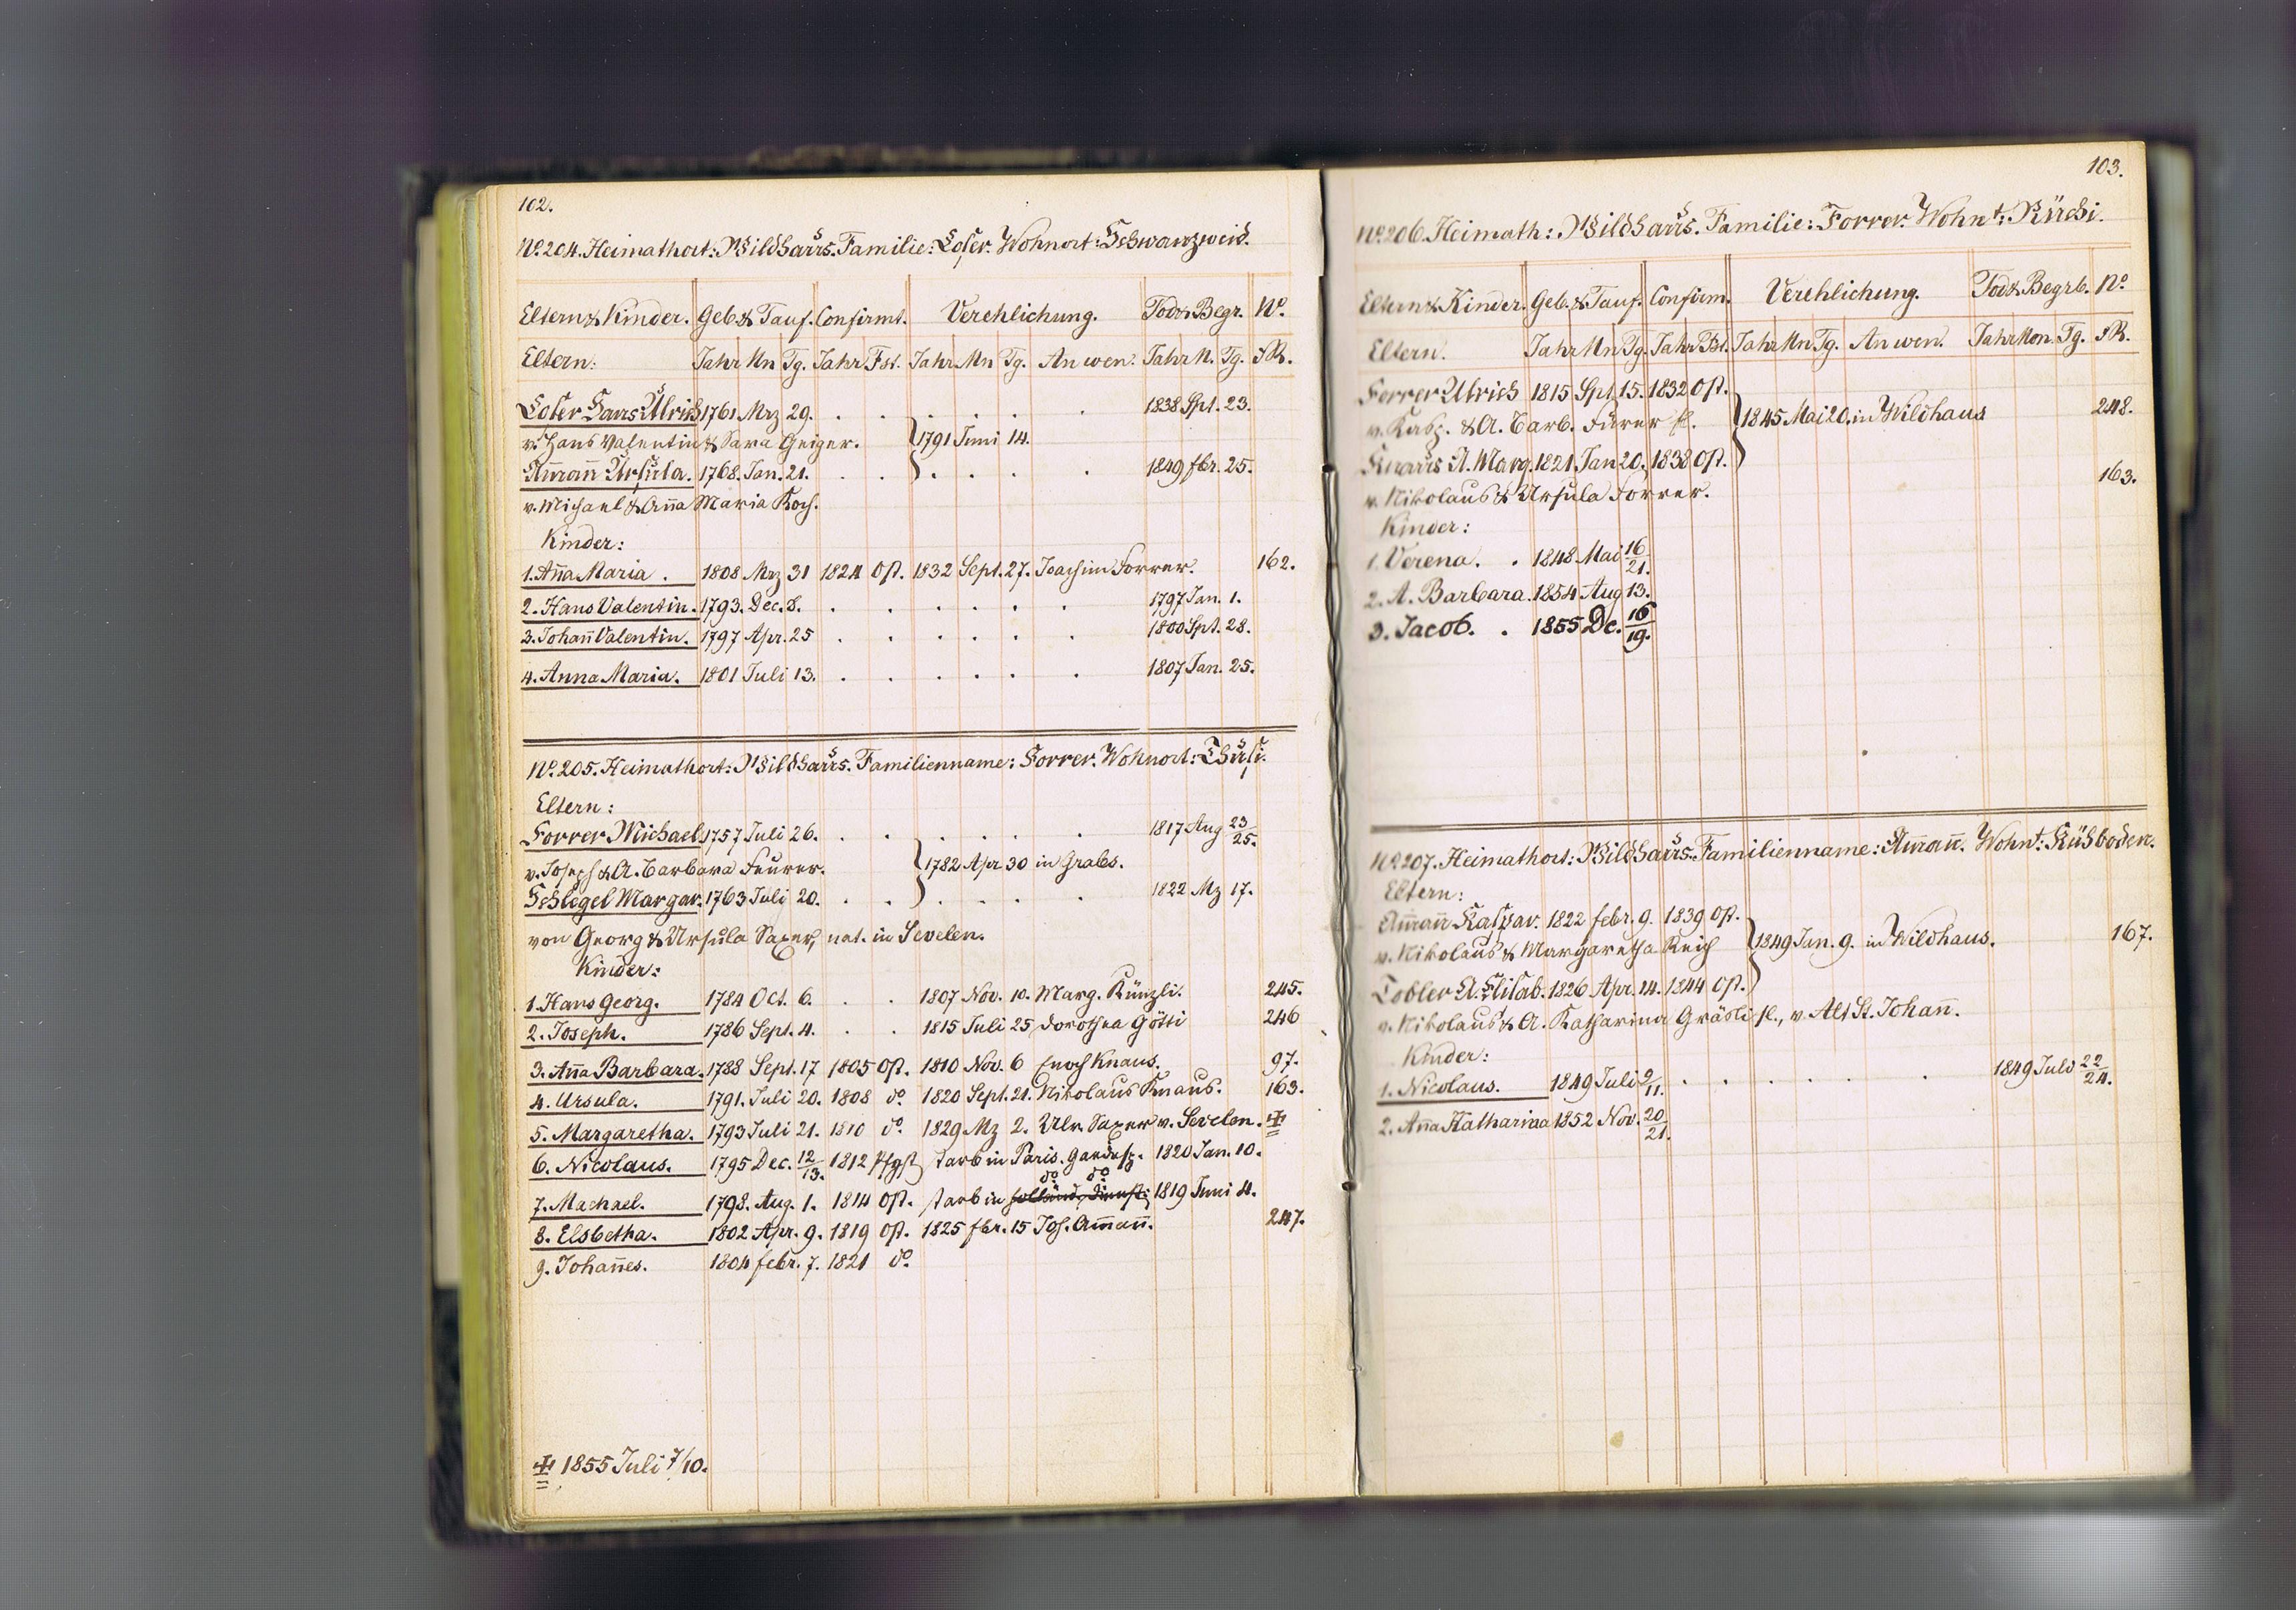 102.
No. 204. Heimathort: Wildhaus. Familie: Loser. Wohnort: Schwanzweid.
Eltern & Kinder. Geb. & Tauf. Confirmt. Verehlichung. Tod & Begr. No.
Eltern: Jahr Mn Tg. Jahr Fst. Jahr Mn Tg. An wen. Jahr M. Tg. i R.
Loser Hans Ulrich 1761 Mrz 29. . . . . . . . 1838 Spt. 23.
v. Hans Valentin & Sara Geiger. } 1791 Juni 14.
Amañ Ursula. 1768. Jan. 21. . . . . . . 1849 fbr. 25.
v. Michael & Aña Maria Koch.
Kinder:
1. Aña Maria . 1808 Mrz 31 1824 Ost. 1832 Sept. 27. Joachim Forrer. 162.
2. Hans Valentin. 1793. Dec. 8. . . . . . . 1797 Jan. 1.
3. Johañ Valentin. 1797 Apr. 25 . . . . . . 1800 Spt. 28.
4. Anna Maria. 1801 Juli 13. . . . . . . 1807 Jan. 25.
No. 205. Heimathort: Wildhaus. Familienname: Forrer. Wohnort: Thurli.
Eltern:
Forrer Michael 1757 Juli 26. . . . . . . . 1817 Aug 23/25.
v. Joseph & A. Barbara Feurer. } 1782 Apr 30 in Grabs.
Schlegel Margar. 1763 Juli 20. . . . . . . 1822 Mz 17.
von Georg & Ursula Saxer, nat. in Sevelen.
Kinder:
1. Hans Georg. 1784 Oct. 6. . . 1807 Nov. 10. Marg. Künzli. 245.
2. Joseph. 1786 Sept. 4. . . 1815 Juli 25 Dorothea Götti 246
3. Aña Barbara. 1788 Sept. 17 1805 Ost. 1810 Nov. 6 Enoch Knaus. 97.
4. Ursula. 1791. Juli 20. 1808 do. 1820 Sept. 21. Nikolaus Knaus. 163.
5. Margaretha. 1793 Juli 21. 1810 do. 1829 Mz 2. Ulr. Saxer v. Sevelen. ‡
6. Nicolaus. 1795 Dec. 12/13. 1812 Pfgst starb in Paris. 1820 Jan. 10.
do do
7. Machael. 1798. Aug. 1. 1814 Ost. starb in holländ. Dienst: 1819 Juni 4.
8. Elsbetha. 1802 Apr. 9. 1819 Ost. 1825 fbr. 15 Jos. Amañ. 247.
9. Johañes. 1804 febr. 7. 1821 do.
‡ 1855 Juli 7/10.
103.
No. 206. Heimath: Wildhaus. Familie: Forrer. Wohnt: Rüchi.
Eltern & Kinder. Geb. & Tauf. Confirm. Verehlichung. Tod & Begrb. No
Eltern. Jahr Mn Tg. Jahr Fst. Jahr Mn Tg. An wen. Jahr Mon. Tg. i R.
Forrer Ulrich 1815 Spt. 15. 1832 Ost.
v. Kasp. & A. Barb. Fürer sl. } 1845 Mai 20. in Wildhaus 248.
Knaus A. Marg. 1821 Jan 20. 1838 Ost. 163.
v. Nikolaus & Ursula Forrer.
Kinder:
1. Verena. . 1848 Mai 16/21.
2. A. Barbara. 1854 Aug 13.
3. Jacob. . 1855 Dc. 16/19.
No. 207. Heimathort: Wildhaus. Familienname: Amañ. Wohnt: Kühboden.
Eltern:
Amañ Kaspar. 1822 febr. 9. 1839 Ost.
v. Nikolaus & Margaretha Reich } 1849 Jan. 9. in Wildhaus. 167.
Tobler A. Elisab. 1826 Apr. 14. 1844 Ost.
v. Nikolaus & A. Katharina Gräsli sl., v. Alt St. Johañ.
Kinder:
1. Nicolaus. 1849 Juli 9/11. . . . . . 1849 Juli 22/24.
2. Aña Katharina 1852 Nov. 20/21.